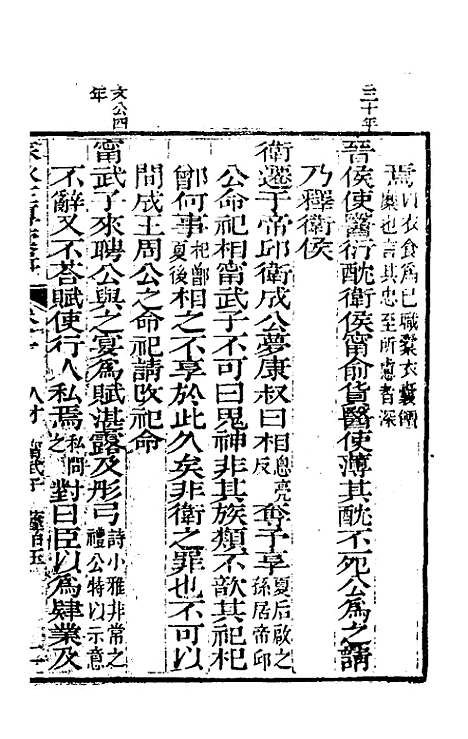 三十年
文公四
年
焉以衣食爲已職橐衣囊饘
于奧也言其忠至所慮者深
晉侯使醫衍酖衛侯甯俞貨醫使薄其酖不死公爲之請
乃釋衛侯
衛遷于帝邱衛成公夢康叔曰相息亮反奪予享夏后啟之孫居帝邱
公命祀相甯武子不可曰鬼神非其族類不歆其祀杞
鄫何事杞鄫夏後相之不享於此久矣非衛之罪也不可以
間成王周公之命祀請改祀命
甯武子來聘公與之宴爲賦湛露及彤弓詩小雅非常之禮公特以示意
不辭又不荅賦使行人私焉私問之對曰臣以爲肄業及
人才 甯武子 蘧伯玉